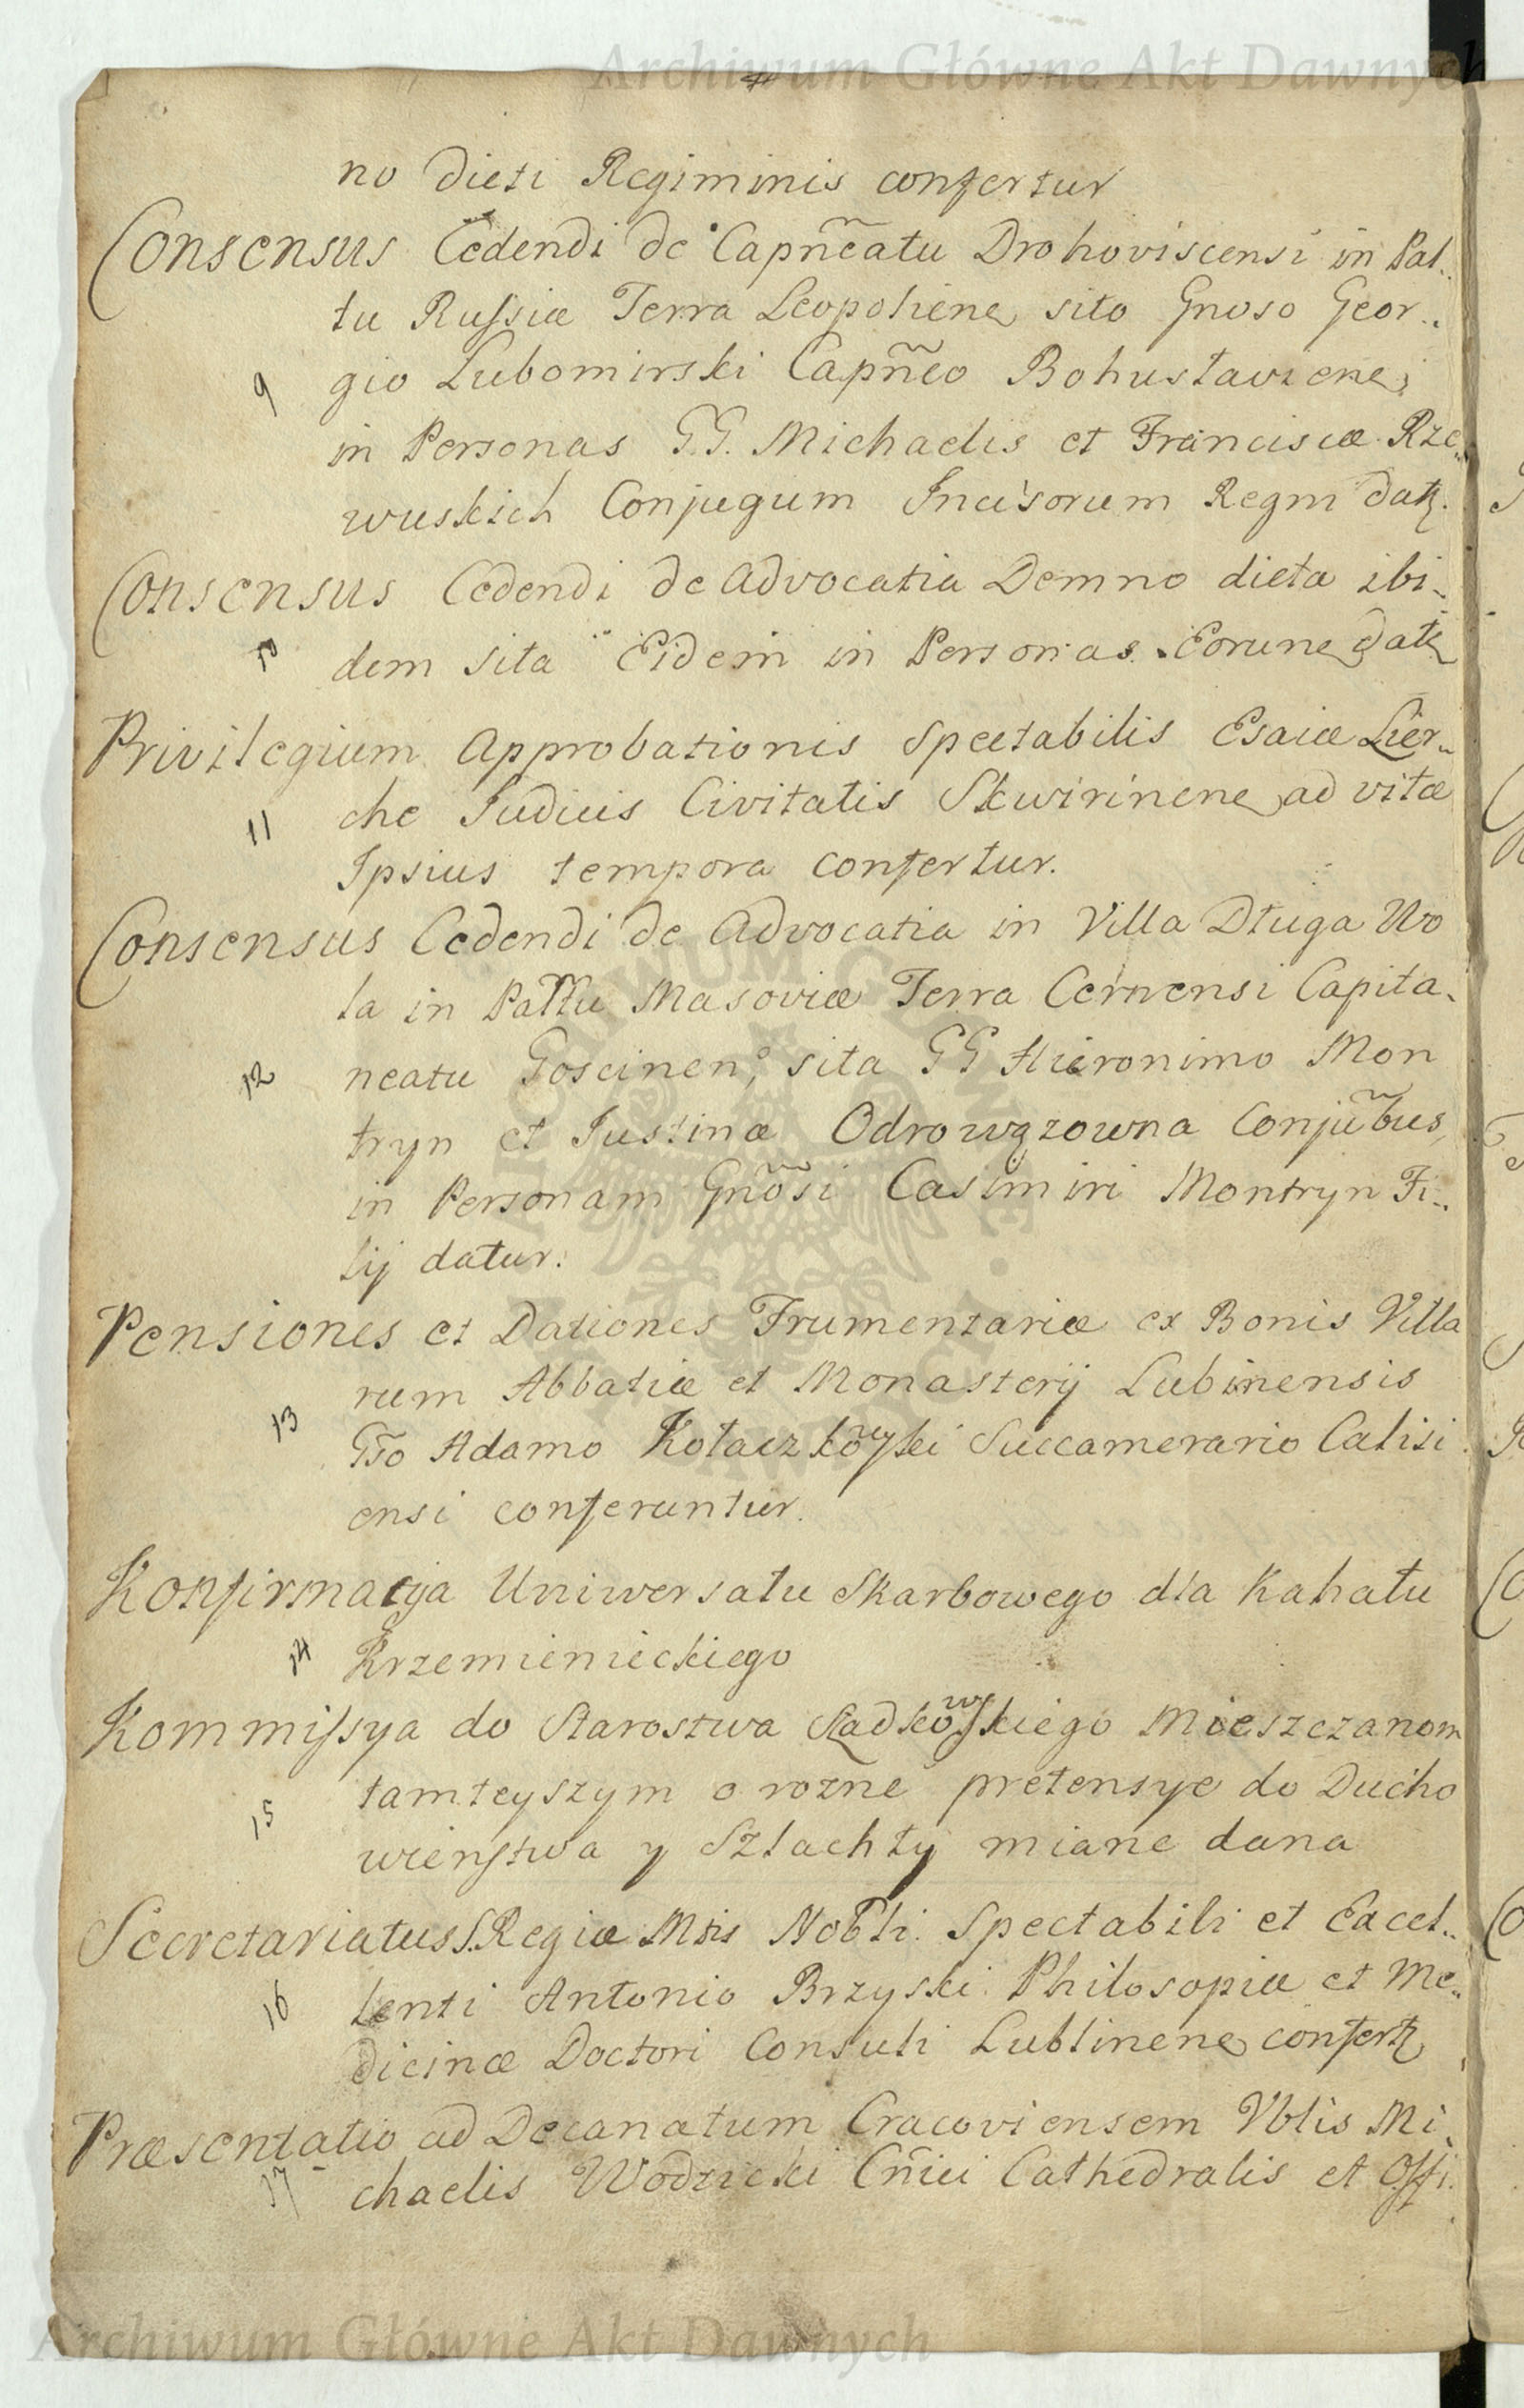 Archiwum Główne Akt Dawnych
no dicti Regiminis confertur
Consensus Cedendi de Capñeatu Drohoviscensi in Pal..
tu Russiæ Terra Leopoliene sito Gnoso Geor..
9 gio Lubomirski Capñeo Bohuslaviene,
in Personas G.G. Michaelis et Franciscæ Rze„
wuskich Conjugum Incisorum Regni datz.
Consensus Cedendi de Advocatia Demno dicta ibi„
10 dem sita Eidem in Personas Eorune datz
Privilegium Approbationis Spectabilis Esaiæ Lier„
11 che Judicis Civitatis Skwirinene ad vitæ
Ipsius tempora confertur.
Consensus Cedendi de Advocatia in Villa Długa Wo
la in Palttu Masoviæ Terra Cernensi Capita„
12 neatu Goscinen, sita GG Hieronimo Mon
tryn et Justinæ Odrowązowna Conjũbus,
in Personam Gnõsi Casimiri Montryn Fi„
lij datur.
Pensiones et Dationes Frumentariæ ex Bonis Villa
rum Abbatiæ et Monasterij Lubinensis
13 Gso Adamo Kołaczkowski Succamerario Calisi
ensi conferuntur.
Konfirmacya Uniwersału Skarbowego dla Kahału
14 Krzemienieckiego
Kommissya do Starostwa Ładkowskiego Mieszczanom
15 tamteyszym o rozne pretensye do Ducho
wienstwa y Szlachty miane dana
Secretariatus S. Regiæ Mtis Nobli. Spectabili et Excel..
16 lenti Antonio Brzyski Philosopiæ et Me„
dicinæ Doctori Consuli Lublinene confertz
Præsentatio ad Decanatum Cracoviensem Vblis Mi„
17 chaelis Wodzicki Cñici Cathedralis et Offi.
Archiwum Główne Akt Dawnych